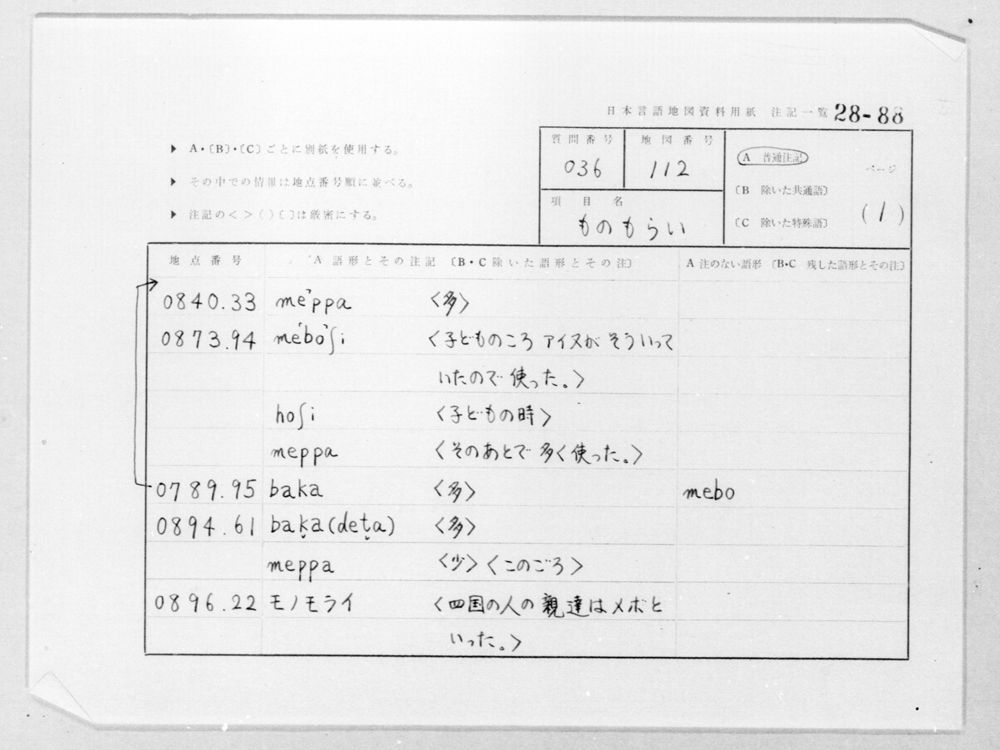 日本言語地図資料用紙 注記一覧 28-88
▶ A・〔B〕・〔C〕ごとに別紙を使用する。
▶ その中での情報は地点番号順に並べる。
▶ 注記の< >( )〔 〕は厳密にする。
質問番号 地図番号
036 112
項目名
ものもらい
A 普通注記
〔B 除いた共通語〕
〔C 除いた特殊語〕
ページ
(1)
地点番号 A 語形とその注記 〔B・C除いた語形とその注〕 A 注のない語形 〔B・C 残した語形とその注〕
0840.33 meˈppa 〈多〉
0873.94 meˈboˈʃi 〈子どものころ アイヌが そういって
いたので 使った。〉
hoʃi 〈子どもの時〉
meppa 〈そのあとで 多く使った。〉
0789.95 baka 〈多〉 mebo
0894.61 bak̬a(det̬a) 〈多〉
meppa 〈少〉〈このごろ〉
0896.22 モノモライ 〈四国の人の 親達はメボと
いった。〉